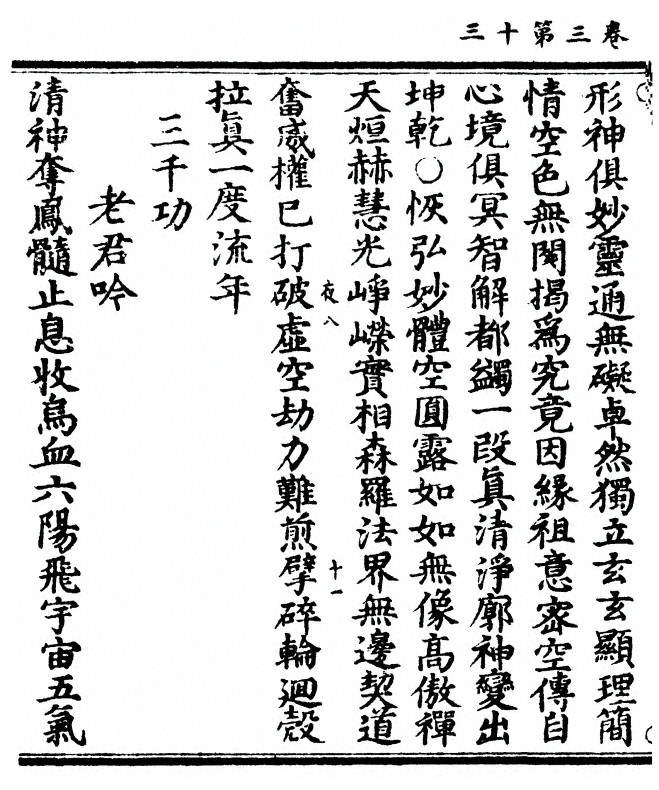 卷三第十三
形神俱妙靈通無礙卓然獨立玄玄顯理簡
情空色無閡揭爲究竟因緣祖意密空傳自
心境俱冥智解都蠲一段眞清淨廓神變出
坤乾○恢弘妙體空圓露如如無像高傲禪
天烜赫慧光崢嶸實相森羅法界無邊契道
夜八 十一
奮威權已打破虛空劫力難煎擘碎輪迴殼
拉眞一度流年
三千功
老君吟
清神奪鳳髓止息收烏血六陽飛宇宙五氣